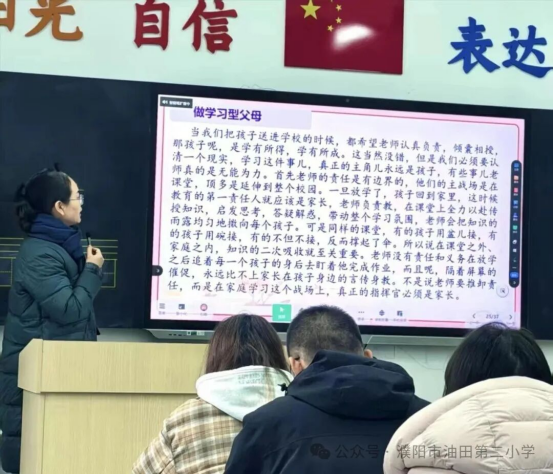 阳光
自信
表达
做学习型父母
当我们把孩子送进学校的时候，都希望老师认真负责，倾囊相授，
那孩子呢，是学有所得，学有所成。这当然没错，但是我们必须要认
清一个现实，学习这件事儿，真正的主角儿永远是孩子，有些事儿老
师真的是无能为力。首先老师的责任是有边界的，他们的主战场是在
课堂，顶多是延伸到整个校园。一旦放学了，孩子回到家里，这时候
教育的第一责任人就应该是家长，老师负责教，在课堂上全力以赴传
授知识，启发思考，答疑解惑，带动整个学习氛围，老师会把知识的
雨露均匀地撒向每个孩子。可是同样的课堂，有的孩子用盆儿接，有
的孩子用碗接，有的不但不接，反而撑起了伞。所以说在课堂之外、
家庭之内，知识的二次吸收就至关重要。老师没有责任和义务在放学
之后追着每一个孩子的身后去盯着他完成作业，而且呢，隔着屏幕的
催促，永远比不上家长在孩子身边的言传身教。不是说老师要推卸责
任，而是在家庭学习这个战场上，真正的指挥官必须是家长。
公众号·濮阳市油田第二小学